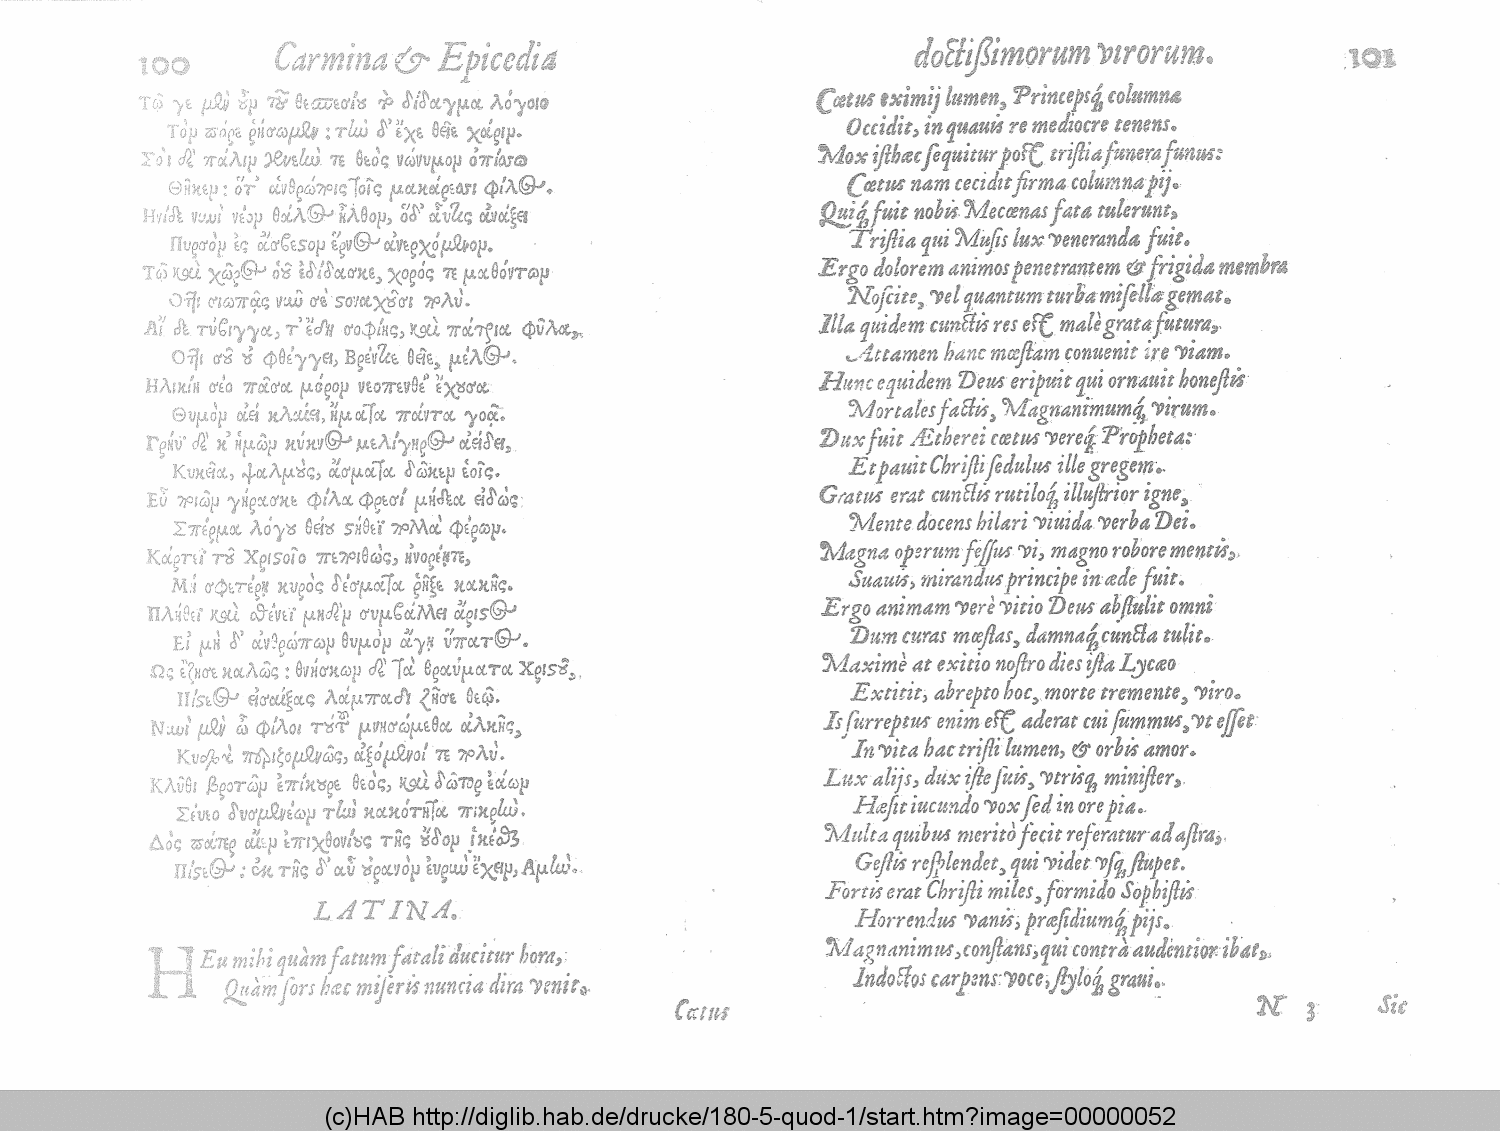 100 Carmina & Epicedia
Τῷ γε μὲν ὃμ τοῦ θεσπεσίου τὸ δίδαγμα λόγοιο
Τὸμ πόρε ῥήσωμεν : τὼ δ' ἔχε θεῖε χάριμ.
Σοὶ δὲ πάλιμ
θεὸς νώνυμομ ὀπίσσω
Θῆκεμ : ὅτ' ἀνθρώποις τοῖς μακάρεσσι φίλος.
νέομ θάλος ἦλθομ, ὅδ' αὖτις ἀνάξει
Πυρσὸμ ἐς ἄσβεςομ ἔρνος ἀνερχόμενομ.
Τῷ καὶ χῶρος οὓ ἐδίδασκε, χορός τε μαθόντωμ
Ὅττι σιωπᾷς νῦν σὲ ςοναχοῦσι πολύ.
Αἴ δὲ τύβιγγα, τ' ἔδη σοφίης, καὶ πάτρια φῦλα,
Ὅττι σὺ οὐ φθέγγει, Βρέντιε θεῖε, μέλος.
Ηλικίη σέο πᾶσα μόρομ νεοπενθέ' ἔχουσα
Θυμὸμ ἀεὶ κλαίει, ἤματα πάντα γοᾷ.
κύκνος μελίγηρος ἀείδει,
Κυκεῖα, ψαλμοὺς, ᾄσματα δῶκεμ ἑοῖς.
Εὖ
γήρασκε φίλα φρεσὶ μήδεα εἰδώς
Σπέρμα λόγου θείου ςήθεϊ πολλὰ φέρωμ.
Κάρτεϊ τοῦ Χριςοῖο πεποιθὼς, ἠνορέητε,
Μὴ σφετέρη κυρὸς δέσματα ῥῆξε κακῆς.
Πλήθεϊ καὶ σθένεϊ μηδὲμ συμβάλλει ἄριςος
Εἰ μὴ δ' ἀνθρώπωμ θυμὸμ ἄγῃ ὕπατος.
Ως ἔζησε καλῶς : θνήσκωμ δὲ τὰ θραύματα Χριςοῦ,
Πίςεος εἰσαίξας λάμπαδι ζῆσε θεῷ.
Νωὶ μὲν ὦ φίλοι τούτου μνησώμεθα ἀλκῆς,
ἀξόμενοί τε πολύ.
Κλῦθι βροτῶμ ἐπίκουρε θεὸς, καὶ δῶτορ ἑάωμ
Σεύεο δυσμενέωμ τὼ κακότητα πικρὼ.
Δὸς πάτερ αἶεμ ἐπιχθονίους τῆς οὗδομ ἱκέσθαι
Πίςεος : ἐκ τῆς δ' αὖ οὐρανὸμ εὐρὺμ ἔχειμ, Ἀμλώ.
LATINA.
HEu mihi quàm fatum fatali ducitur hora,
Quàm sors hæc miseris nuncia dira venit.
Cætus
doctißimorum virorum. 101
Cætus eximij lumen, Princepsq́; columna
Occidit, in quauis re mediocre tenens.
Mox isthæc sequitur post tristia funera funus:
Cœtus nam cecidit firma columna pij.
Quiq́; fuit nobis Mecœnas fata tulerunt,
Tristia qui Musis lux veneranda fuit.
Ergo dolorem animos penetrantem & frigida membra
Noscite, vel quantum turba misella gemat.
Illa quidem cunctis res est malè grata futura,
Attamen hanc mœstam conuenit ire viam.
Hunc equidem Deus eripuit qui ornauit honestis
Mortales factis, Magnanimumq́; virum.
Dux fuit Ætherei cœtus vereq́; Propheta:
Et pauit Christi sedulus ille gregem.
Gratus erat cunctis rutiloq́; illustrior igne,
Mente docens hilari viuida verba Dei.
Magna operum fessus vi, magno robore mentis,
Suauis, mirandus principe in æde fuit.
Ergo animam verè vitio Deus abstulit omni
Dum curas mœstas, damnaq́; cuncta tulit.
Maximè at exitio nostro dies ista Lycæo
Extitit, abrepto hoc, morte tremente, viro.
Is surreptus enim est aderat cui summus, vt esset
In vita hac tristi lumen, & orbis amor.
Lux alijs, dux iste suis, vtrisq; minister,
Hæsit iucundo vox sed in ore pia.
Multa quibus meritò fecit referatur ad astra,
Gestis resplendet, qui videt vsq; stupet.
Fortis erat Christi miles, formido Sophistis
Horrendus vanis, præsidiumq́; pijs.
Magnanimus, constans, qui contrà audentior ibat,
Indoctos carpens voce, styloq́; graui.
N 3 Sic
(c)HAB http://diglib.hab.de/drucke/180-5-quod-1/start.htm?image=00000052